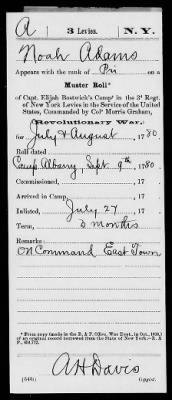 A | 3 Levies. | N.Y.
Noah Adams
Appears with the rank of Pri on a
Muster Roll*
of Capt. Elijah Bostwick's Comp'y in the 3d Regt.
of New York Levies in the Service of the United
States, Commanded by Colo Morris Graham,
Revolutionary War.
for July & August, 1780.
Roll dated
Camp Albany, Sept 9th, 1780
Commissioned, , 17
Arrived in Camp, , 17
Enlisted, July 27, 17
Term, 3 months
Remarks:
On Command East Town
*From copy (made in the R. & P. Office, War Dept., in Oct.,
of an original record borrowed from the State of New York.—R. & P.
A H Davis
Copyist.